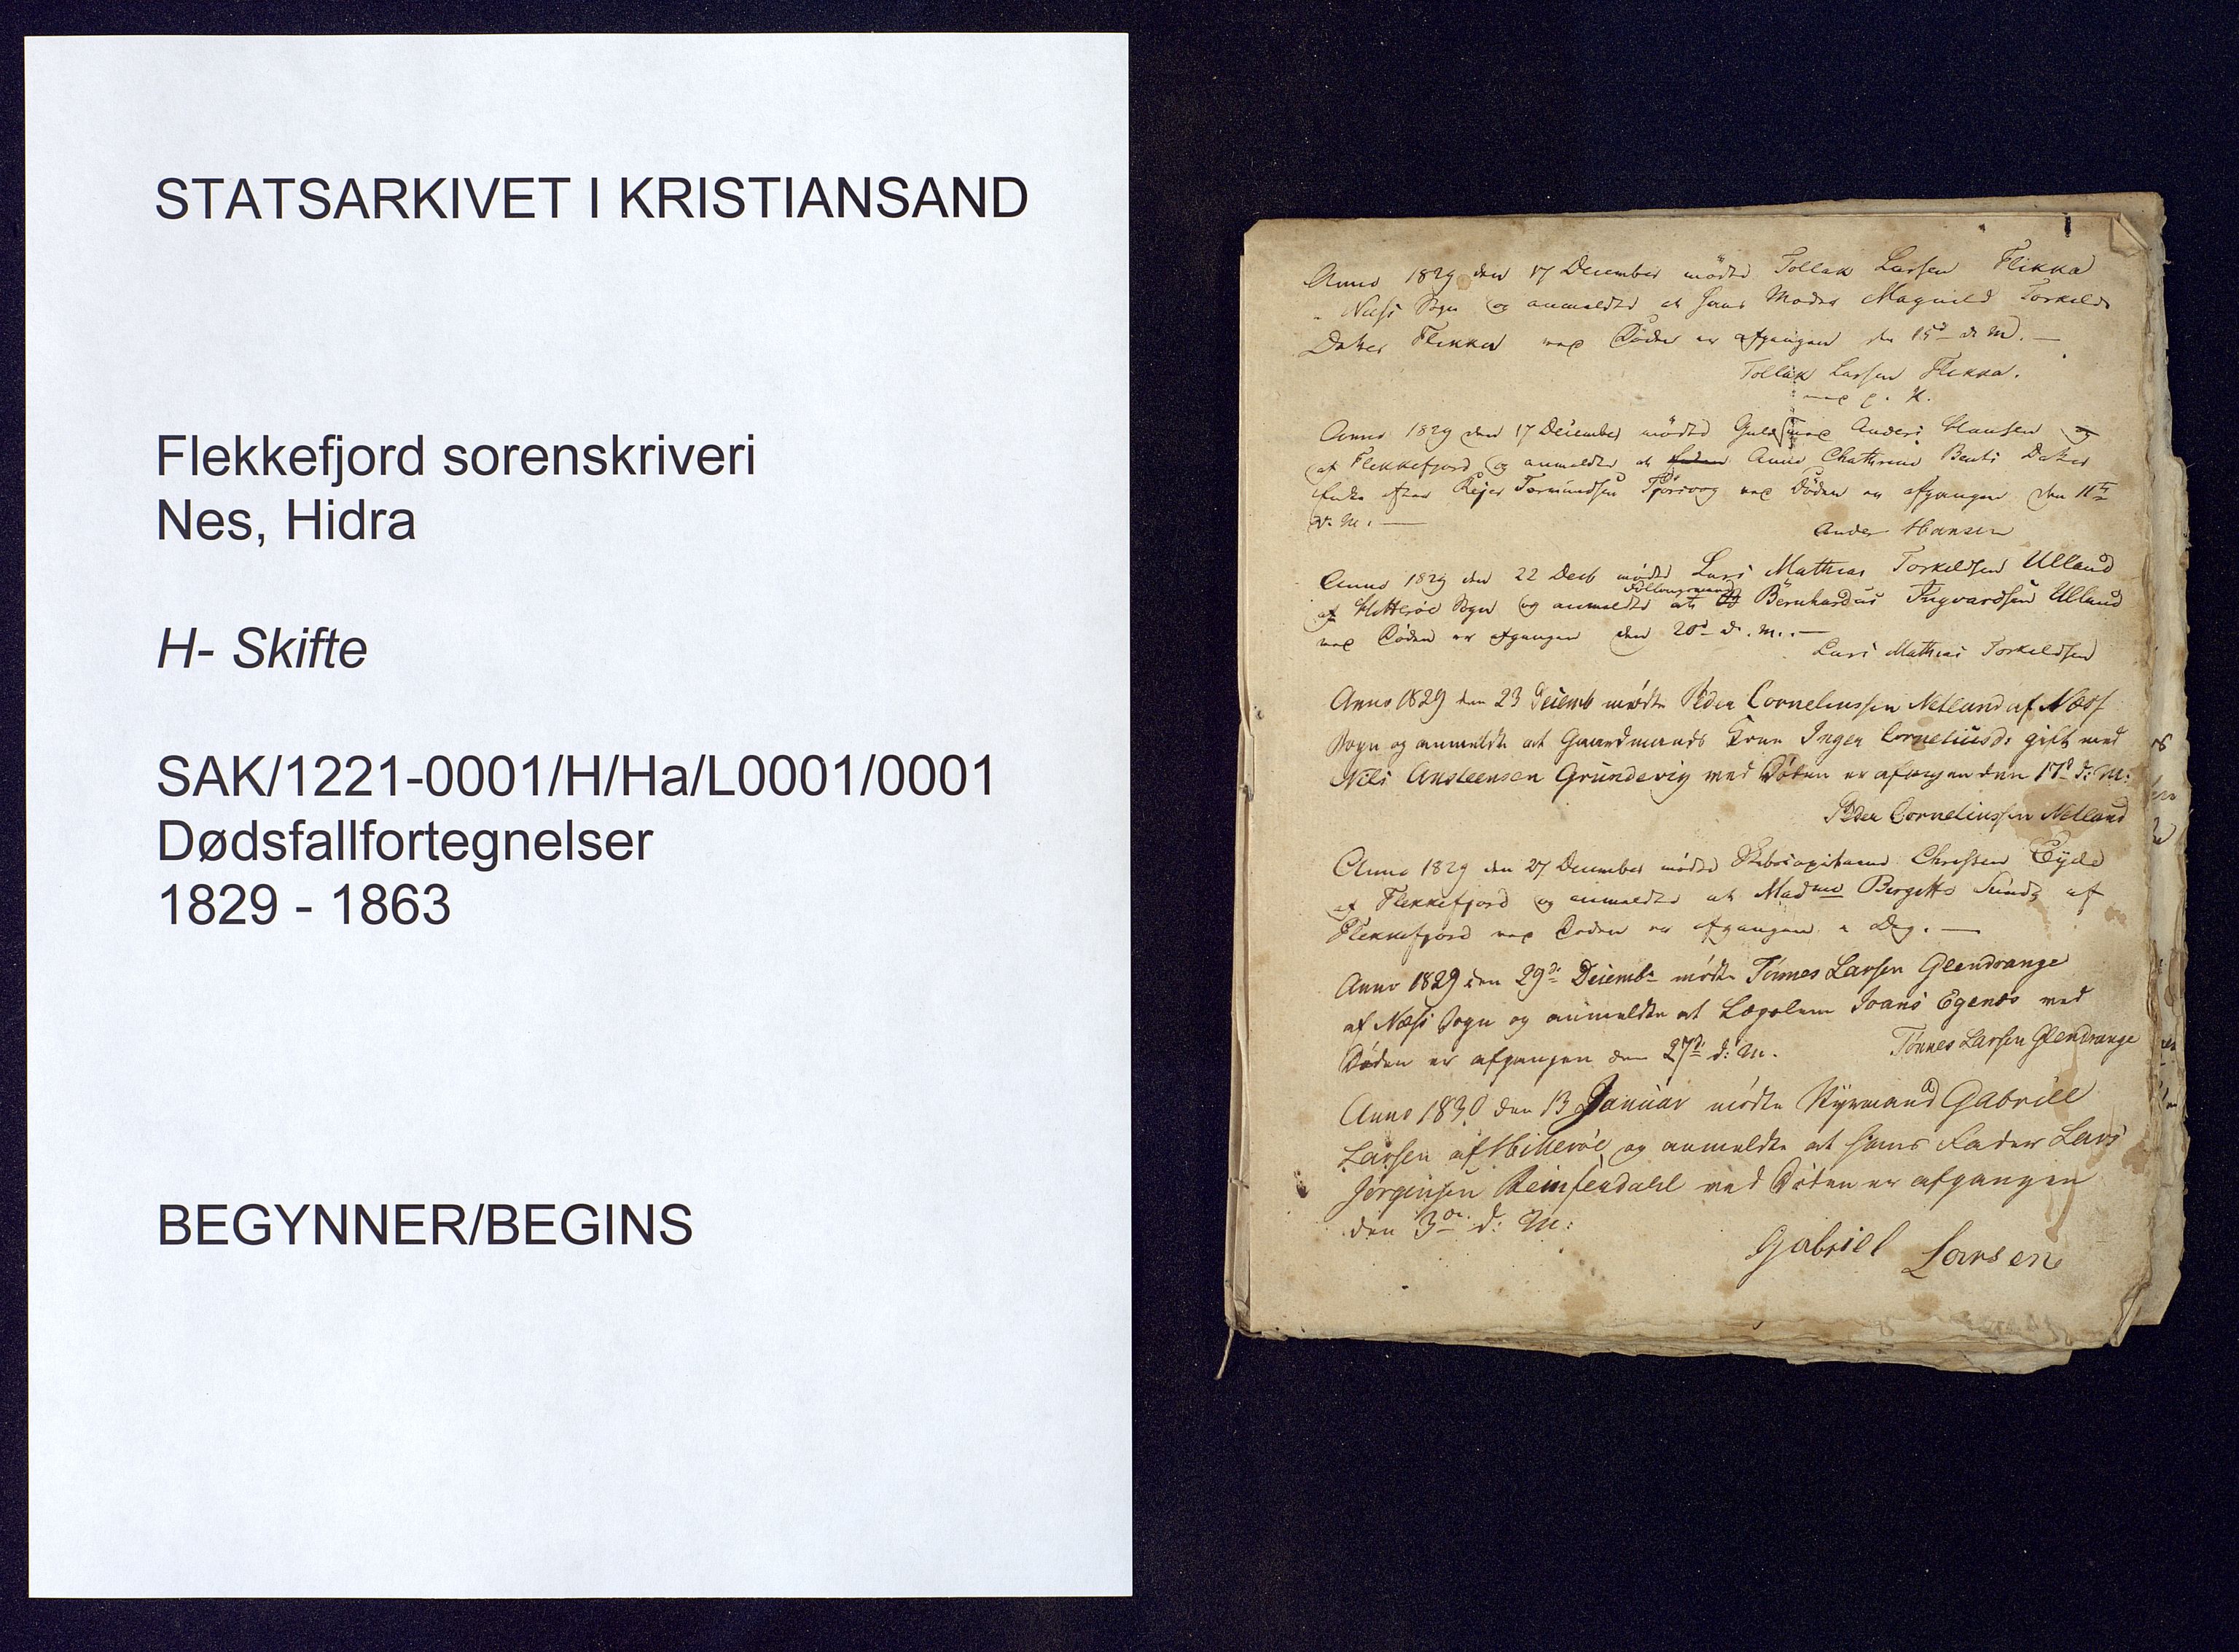 STATSARKIVET I KRISTIANSAND
Flekkefjord sorenskriveri
Nes, Hidra
H- Skifte
SAK/1221-0001/H/Ha/L0001/0001
Dødsfallfortegnelser
1829 - 1863
BEGYNNER/BEGINS
Anno 1829 den 17 December mødte Tollak Larsen Flikka
Næss Sogn og anmeldte at hans Moder Magnild Torkilds
Datter Flikka ved Døden er afgangen den 15d d. M. —
Tollak Larsen Flikka.
Anno 1829 den 17 December mødte Anders Hansen
af Flekkefjord og anmeldte at Anne Chathrine Bents Datter
Enke efter Rejer Tormundsen Tjorsvog ved Døden er afgangen den 11te
d. M. —
Ander Hansen
Anno 1829 den 22 Decb mødte Lars Mathias Torkildsen Ulland
af Hitterøe Sogn og anmeldte at Bernhardus Ingvardsen Ulland
ved Døden er afgangen den 20d d. M. —
Lars Mathias Torkildsen
Anno 1829 den 23 Decemb mødte Peder Corneliussen Netland af Næss
Sogn og anmeldte at Gaardmands Kone Inger Corneliusd: gift med
Nils Ansteensen Grundevig ved Døden er afgangen den 17d d: M:
Peder Corneliussen Netland
Anno 1829 den 27 December mødte Skibscapitaine Christen Eyde
af Flekkefjord og anmeldte at Madme Bergitte Sundt af
Flekkefjord ved Døden er afgangen i Dag. —
Anno 1829 den 29de Decemb mødte Tønnes Larsen Glendrange
af Næss Sogn og anmeldte at Lægdslem Egenes ved
Døden er afgangen den 27d d: M.
Tønnes Larsen Glendrange
Anno 1830 den 13 Januar mødte Styrmand Gabriel
Larsen af Hitterøe og anmeldte at hans Fader Lars
Jørgensen ved Døden er afgangen
den 3die d: M:
Gabriel Larsen